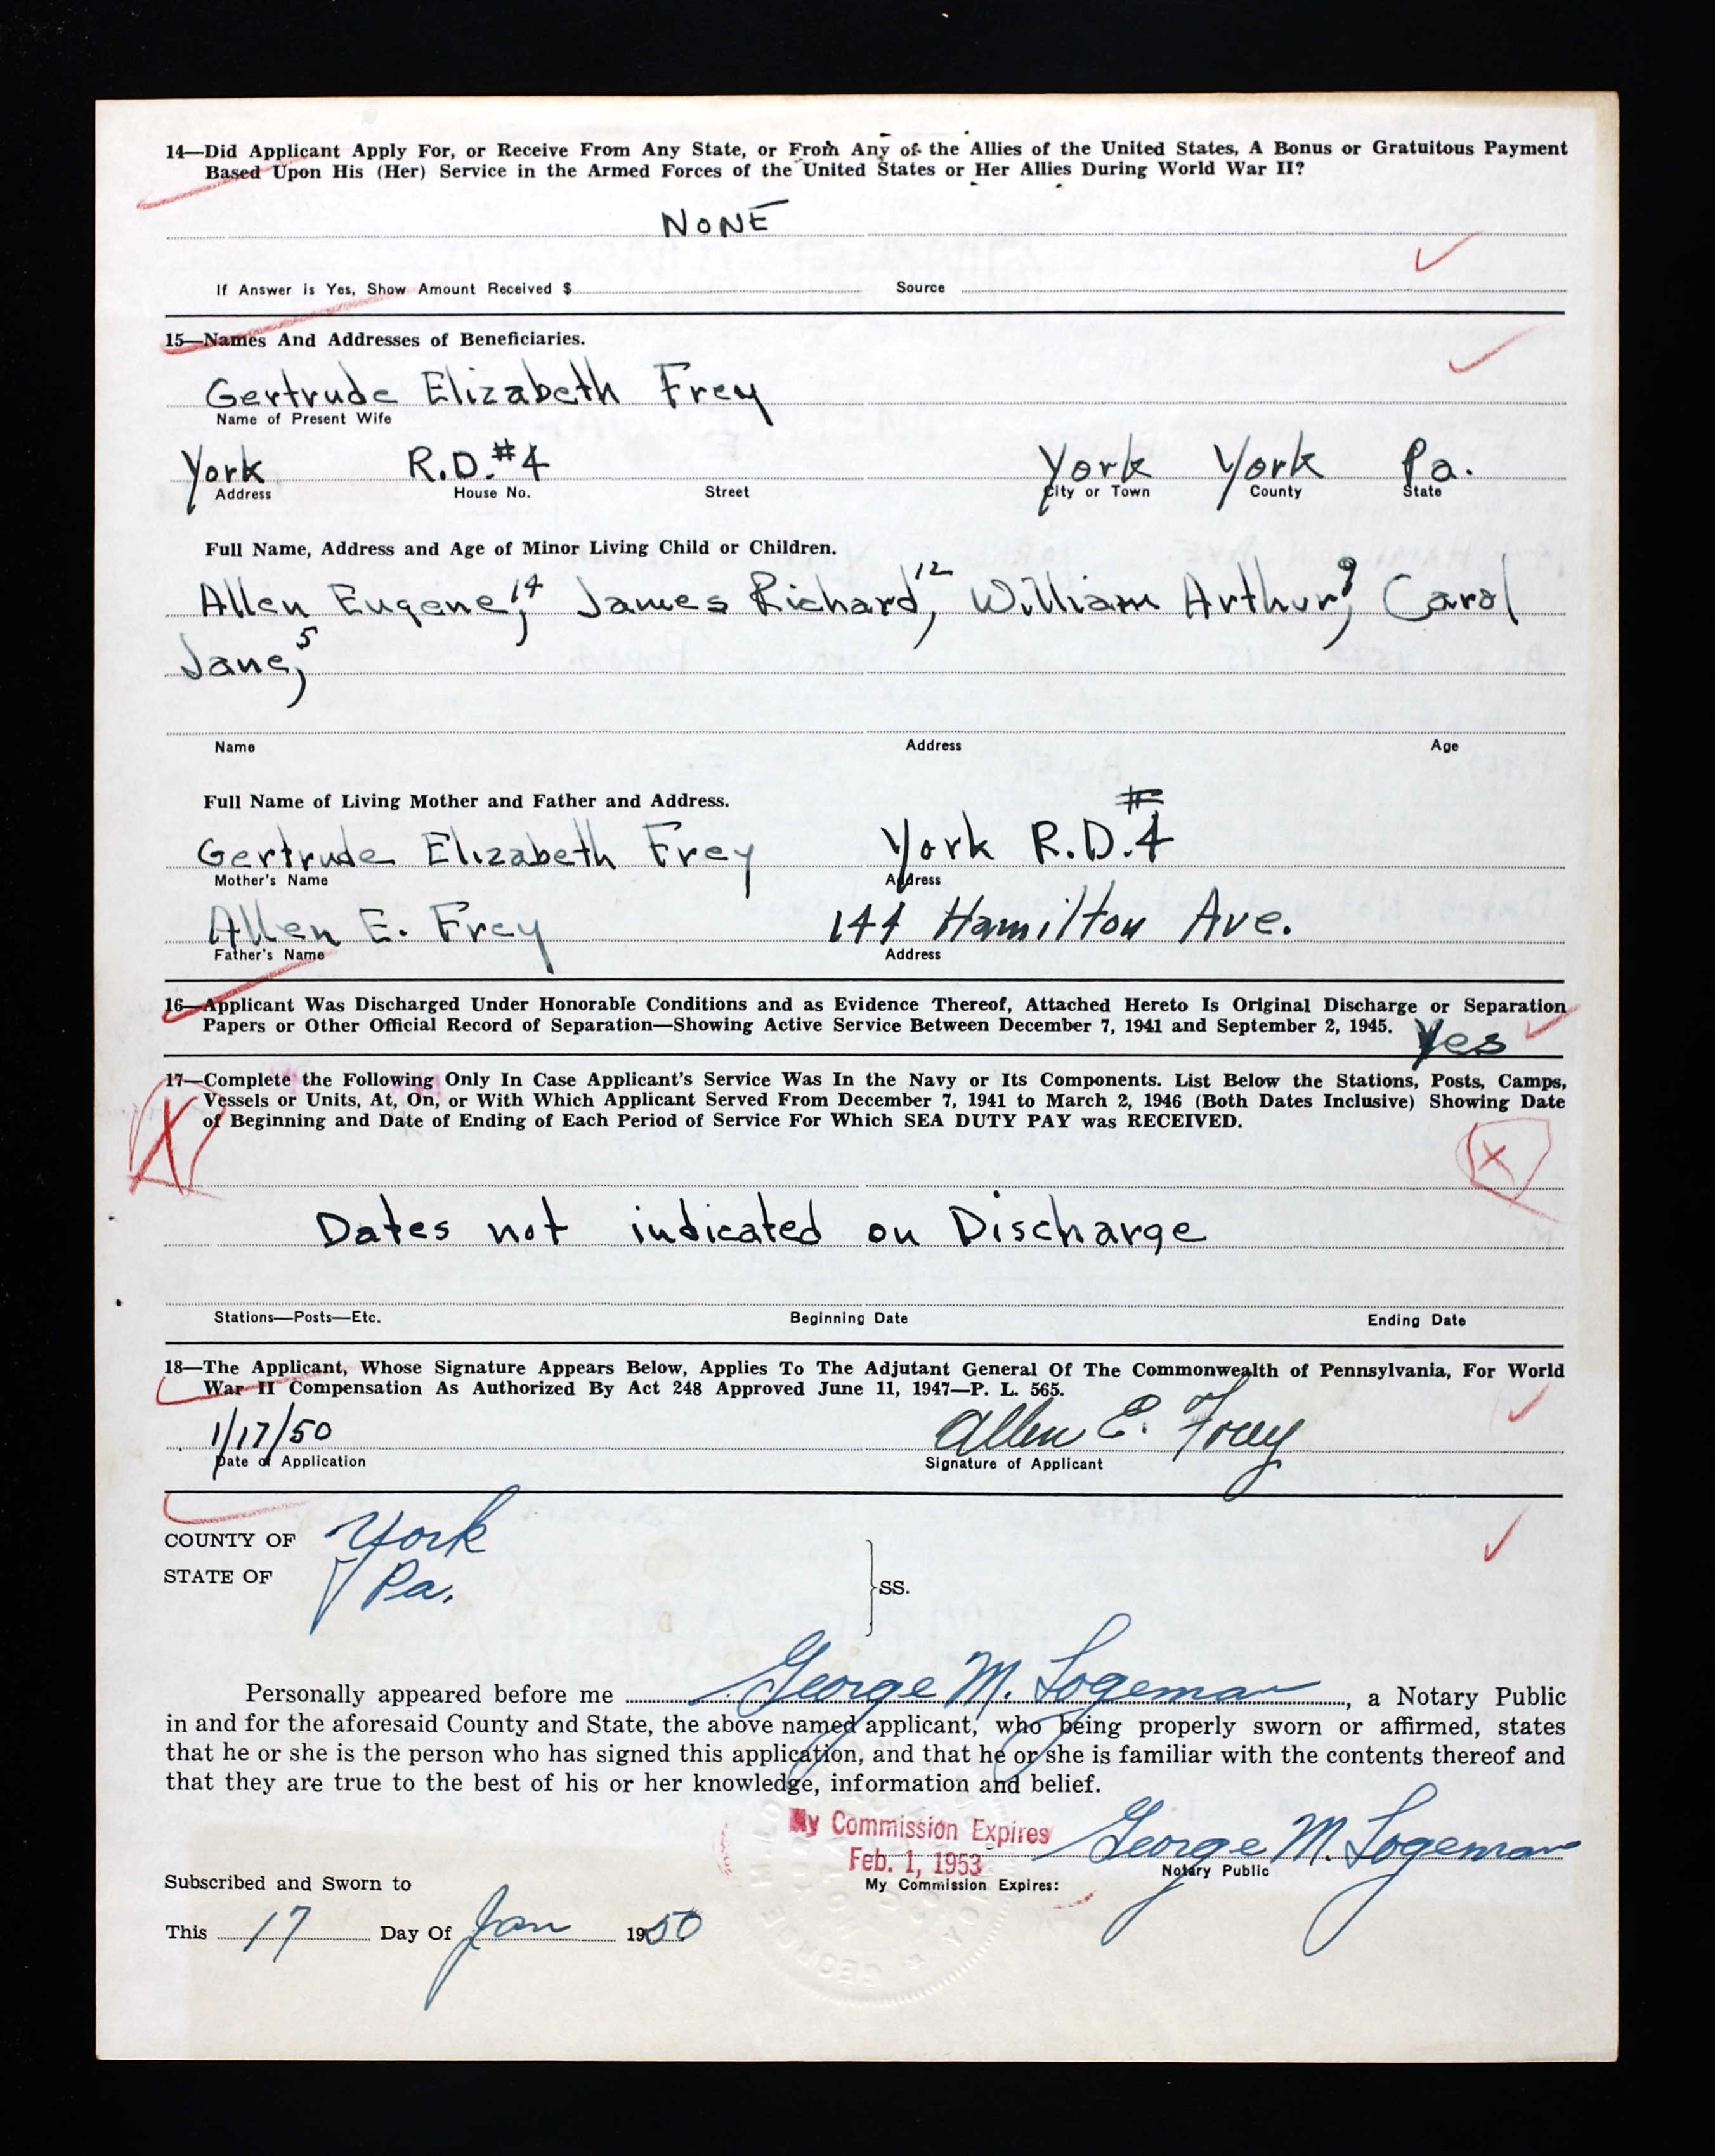 14—Did Applicant Apply For, or Receive From Any State, or From Any of the Allies of the United States, A Bonus or Gratuitous Payment
Based Upon His (Her) Service in the Armed Forces of the United States or Her Allies During World War II?
NONE
If Answer is Yes, Show Amount Received $ Source
15—Names And Addresses of Beneficiaries.
Gertrude Elizabeth Frey
Name of Present Wife
York R.D. #4 York York Pa.
Address House No. Street City or Town County State
Full Name, Address and Age of Minor Living Child or Children.
Allen Eugene, 14 James Richard, 12 William Arthur, 9 Carol
Jane, 5
Name Address Age
Full Name of Living Mother and Father and Address.
Gertrude Elizabeth Frey York R.D. #4
Mother's Name Address
Allen E. Frey 144 Hamilton Ave.
Father's Name Address
16—Applicant Was Discharged Under Honorable Conditions and as Evidence Thereof, Attached Hereto Is Original Discharge or Separation
Papers or Other Official Record of Separation—Showing Active Service Between December 7, 1941 and September 2, 1945. Yes
17—Complete the Following Only In Case Applicant's Service Was In the Navy or Its Components. List Below the Stations, Posts, Camps,
Vessels or Units, At, On, or With Which Applicant Served From December 7, 1941 to March 2, 1946 (Both Dates Inclusive) Showing Date
of Beginning and Date of Ending of Each Period of Service For Which SEA DUTY PAY was RECEIVED.
Dates not indicated on Discharge
Stations—Posts—Etc. Beginning Date Ending Date
18—The Applicant, Whose Signature Appears Below, Applies To The Adjutant General Of The Commonwealth of Pennsylvania, For World
War II Compensation As Authorized By Act 248 Approved June 11, 1947—P. L. 565.
1/17/50 Allen E. Frey
Date of Application Signature of Applicant
COUNTY OF York
STATE OF Pa. SS.
Personally appeared before me George M. Logeman, a Notary Public
in and for the aforesaid County and State, the above named applicant, who being properly sworn or affirmed, states
that he or she is the person who has signed this application, and that he or she is familiar with the contents thereof and
that they are true to the best of his or her knowledge, information and belief.
My Commission Expires George M. Logeman
Feb. 1, 1953 Notary Public
Subscribed and Sworn to My Commission Expires:
This 17 Day Of Jan 1950